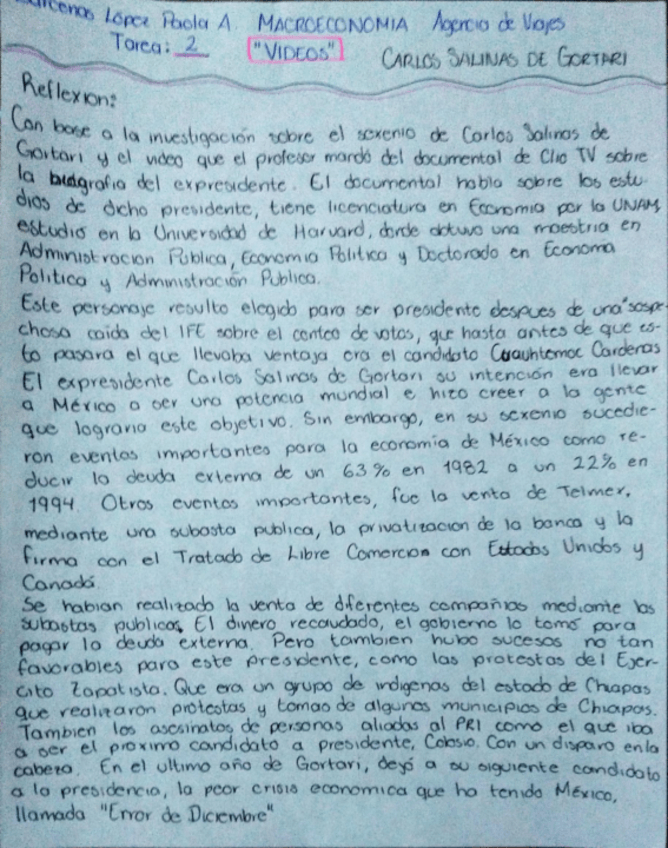 López Paola A. MACROECONOMIA Agencia de Viajes
Tarea: 2 "VIDEOS" CARLOS SALINAS DE GORTARI
Reflexion:
Con base a la investigación sobre el sexenio de Carlos Salinas de
Gortari y el video que el profesor mandó del documental de Clio TV sobre
la biografia del expresidente. El documental habla sobre los estu-
dios de dicho presidente, tiene licenciatura en Economia por la UNAM,
estudio en la Universidad de Harvard, donde obtuvo una maestria en
Administracion Pública, Economia Politica y Doctorado en Economa
Politica y Administración Publica.
Este personaje resulto elegido para ser presidente despues de una "sospe
chosa caida del IFE sobre el conteo de votos, que hasta antes de que es-
to pasara el que llevaba ventaja era el candidato Cuauhtemoc Cardenas
El expresidente Carlos Salinas de Gortari su intención era llevar
a México a ser una potencia mundial e hizo creer a la gente
que lograria este objetivo. Sin embargo, en su sexenio sucedie-
ron eventos importantes para la economía de México como re-
ducir la deuda externa de un 63% en 1982 a un 22% en
1994. Otros eventos importantes, fue la venta de Telmex,
mediante una subasta publica, la privatizacion de la banca y la
firma con el Tratado de Libre Comercion con Estados Unidos y
Canadá.
Se habian realizado la venta de diferentes compañias mediante las
subastas publicas. El dinero recaudado, el gobierno lo tomó para
pagar la deuda externa. Pero tambien hubo sucesos no tan
favorables para este presidente, como las protestas del Ejer-
cito Zapatista. Que era un grupo de indigenas del estado de Chiapas
que realizaron protestas y tomas de algunos municipios de Chiapas.
Tambien los asesinatos de personas aliadas al PRI como el que iba
a ser el proximo candidato a presidente, Colosio. Con un disparo en la
cabeza. En el ultimo año de Gortari, dejó a su siguiente candidato
a la presidencia, la peor crisis economica que ha tenido México,
llamada "Error de Diciembre"